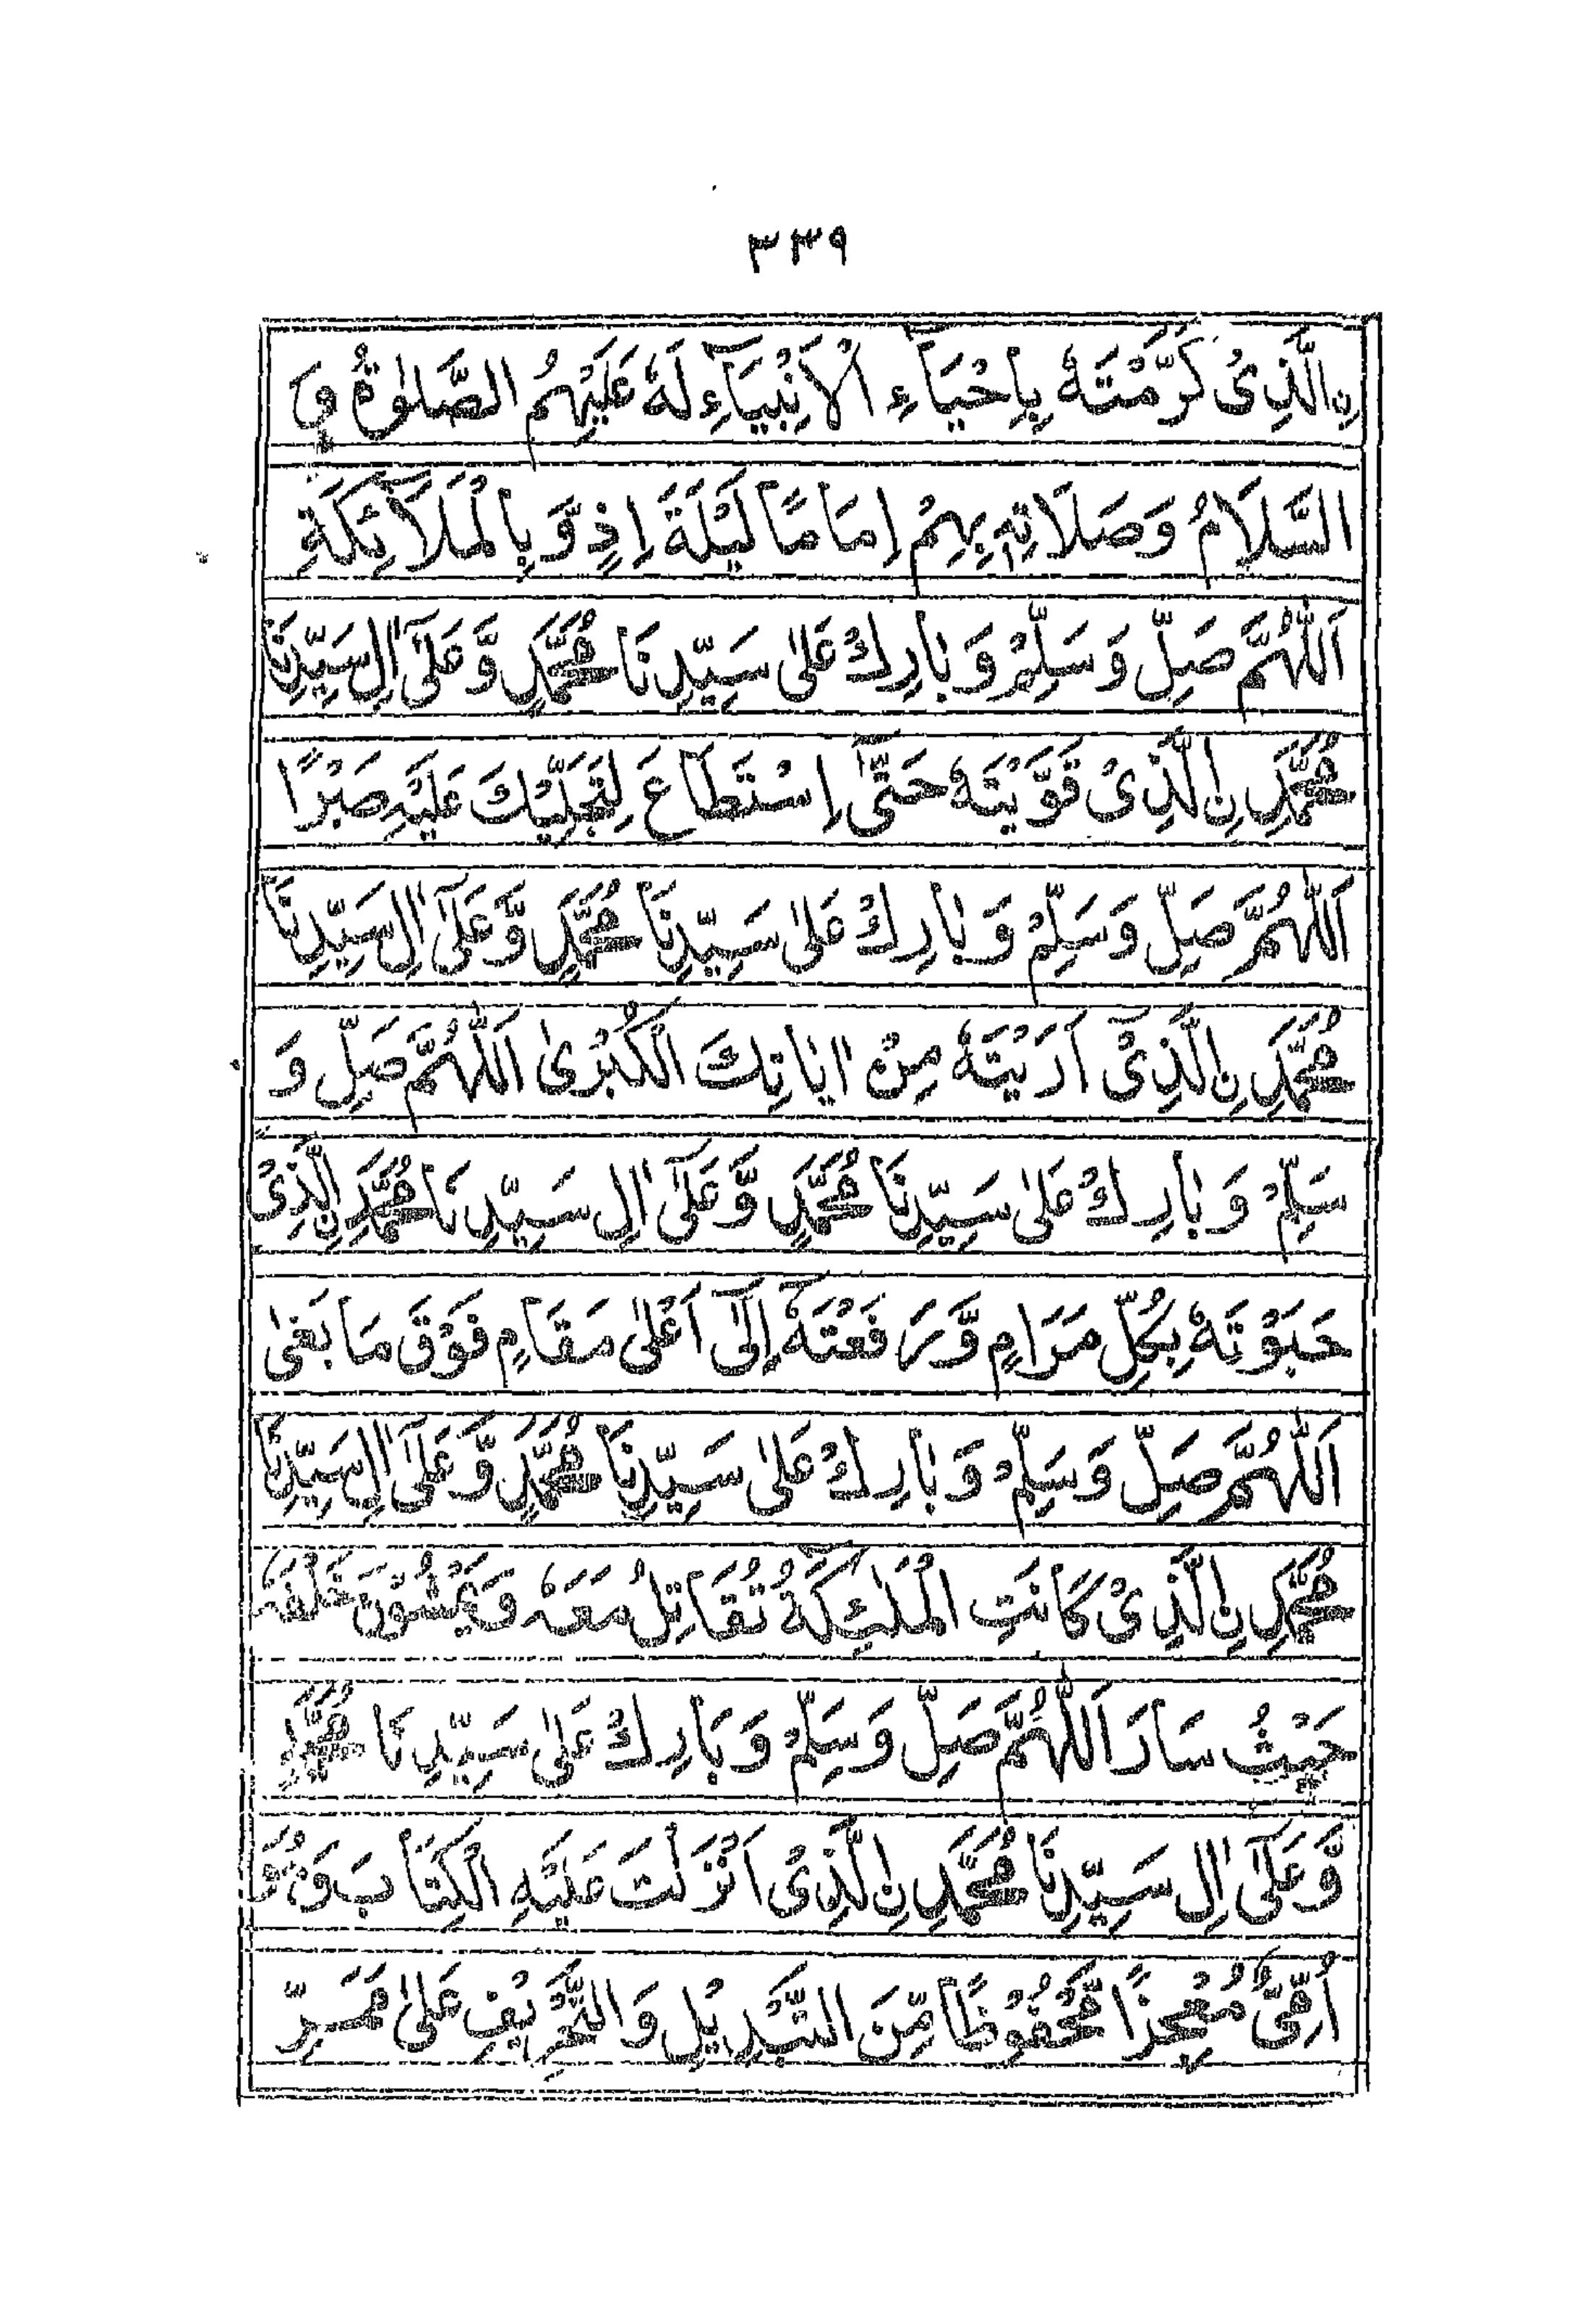 ٣٣٩
نِ الَّذِیْ كَرَّمْتَهٗ بِاِحْیَآءِ الْاَنْۢبِیَآءِ لَهٗ عَلَیْهِمُ الصَّلٰوةُ وَ
السَّلَامُ وَصَلَاتِهٖ بِهِمْ اِمَامًا لَیْلَةَ اِذٍ وَّ بِالْمَلَآئِكَةِ
اَللّٰهُمَّ صَلِّ وَسَلِّمْ وَ بَارِكْ عَلٰی سَیِّدِنَا مُحَمَّدٍ وَّ عَلٰٓی اٰلِ سَیِّدِنَا
مُحَمَّدِ نِ الَّذِیْ قَوَّیْتَهٗ حَتّٰی اِسْتَطَاعَ لِتَجَلِّیْكَ عَلَیْهِ صَبْرًا
اَللّٰهُمَّ صَلِّ وَسَلِّمْ وَ بَارِكْ عَلٰی سَیِّدِنَا مُحَمَّدٍ وَّ عَلٰٓی اٰلِ سَیِّدِنَا
مُحَمَّدِ نِ الَّذِیْٓ اَرَیْتَهٗ مِنْ اٰیَاتِكَ الْكُبْرٰی اَللّٰهُمَّ صَلِّ وَ
سَلِّمْ وَ بَارِكْ عَلٰی سَیِّدِنَا مُحَمَّدٍ وَّ عَلٰٓی اٰلِ سَیِّدِنَا مُحَمَّدِ نِ الَّذِیْ
حَبَوْتَهٗ بِكُلِّ مَرَامٍ وَّ رَفَعْتَهٗٓ اِلٰٓی اَعْلٰی مَقَامٍ فَوْقَ مَا بَغٰی
اَللّٰهُمَّ صَلِّ وَسَلِّمْ وَ بَارِكْ عَلٰی سَیِّدِنَا مُحَمَّدٍ وَّ عَلٰٓی اٰلِ سَیِّدِنَا
مُحَمَّدِ نِ الَّذِیْ كَانَتِ الْمَلٰٓئِكَةُ تُقَاتِلُ مَعَهٗ وَ یَمْشُوْنَ خَلْفَهٗ
حَیْثُ سَارَ اَللّٰهُمَّ صَلِّ وَسَلِّمْ وَ بَارِكْ عَلٰی سَیِّدِنَا مُحَمَّدٍ
وَّ عَلٰٓی اٰلِ سَیِّدِنَا مُحَمَّدِ نِ الَّذِیْ اَنْزَلْتَ عَلَیْهِ الْكِتَابَ وَ هُوَ
اُمِّیٌّ مُعْجِزًا مَّحْفُوْظًا مِّنَ التَّبْدِیْلِ وَ التَّحْرِیْفِ عَلٰی مَمَرِّ